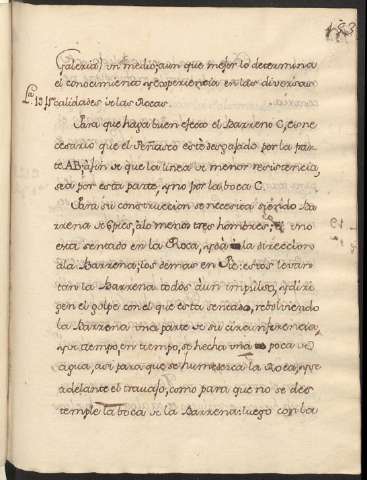 183
Galeria) un medio; aun que mejor lo determina
el conocimiento y experiencia en las diversas
calidades de las Rocas.
Para que haga buen efecto el Barreno C, es ne
cesario que el Peñasco esté despejado por la par
te AB; a fin de que la linea de menor resistencia,
sea por esta parte, y no por la boca C.
Para su construccion se necesita siendo Ba
rrena de 6 pies, alo menos tres hombres; el uno
esta sentado en la Roca, y dà la direccion
ala Barrena; los demas en Pie: estos levan
tan la Barrena todos à un impulso, y diri
gen el golpe con el que esta sentado, rebolviendo
la Barrena una parte de su circunferencia,
y de tiempo, en tiempo, se hecha una poca de
agua, asi para que se humedezca la Roca, y se
adelante el travajo, como para que no se des
temple la boca de la Barrena: luego con la